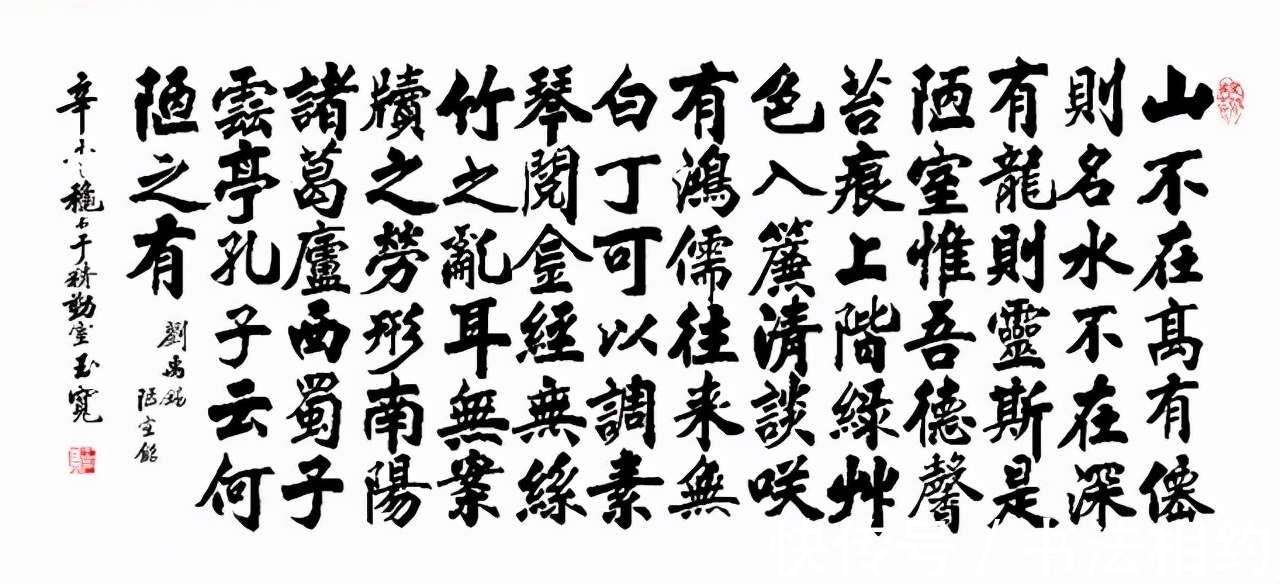 山不在髙有僊
則名水不在深
有龍則靈斯是
陋室惟吾德馨
苔痕上階緑艸
色入簾清談咲
有鴻儒往来無
白丁可以調素
琴閲金經無絲
竹之亂耳無案
牘之勞形南陽
諸葛廬西蜀子
雲亭孔子云何
陋之有
劉禹錫
陋室銘
辛 穐 于耕勤室玉寬
快传号 / 书法相约